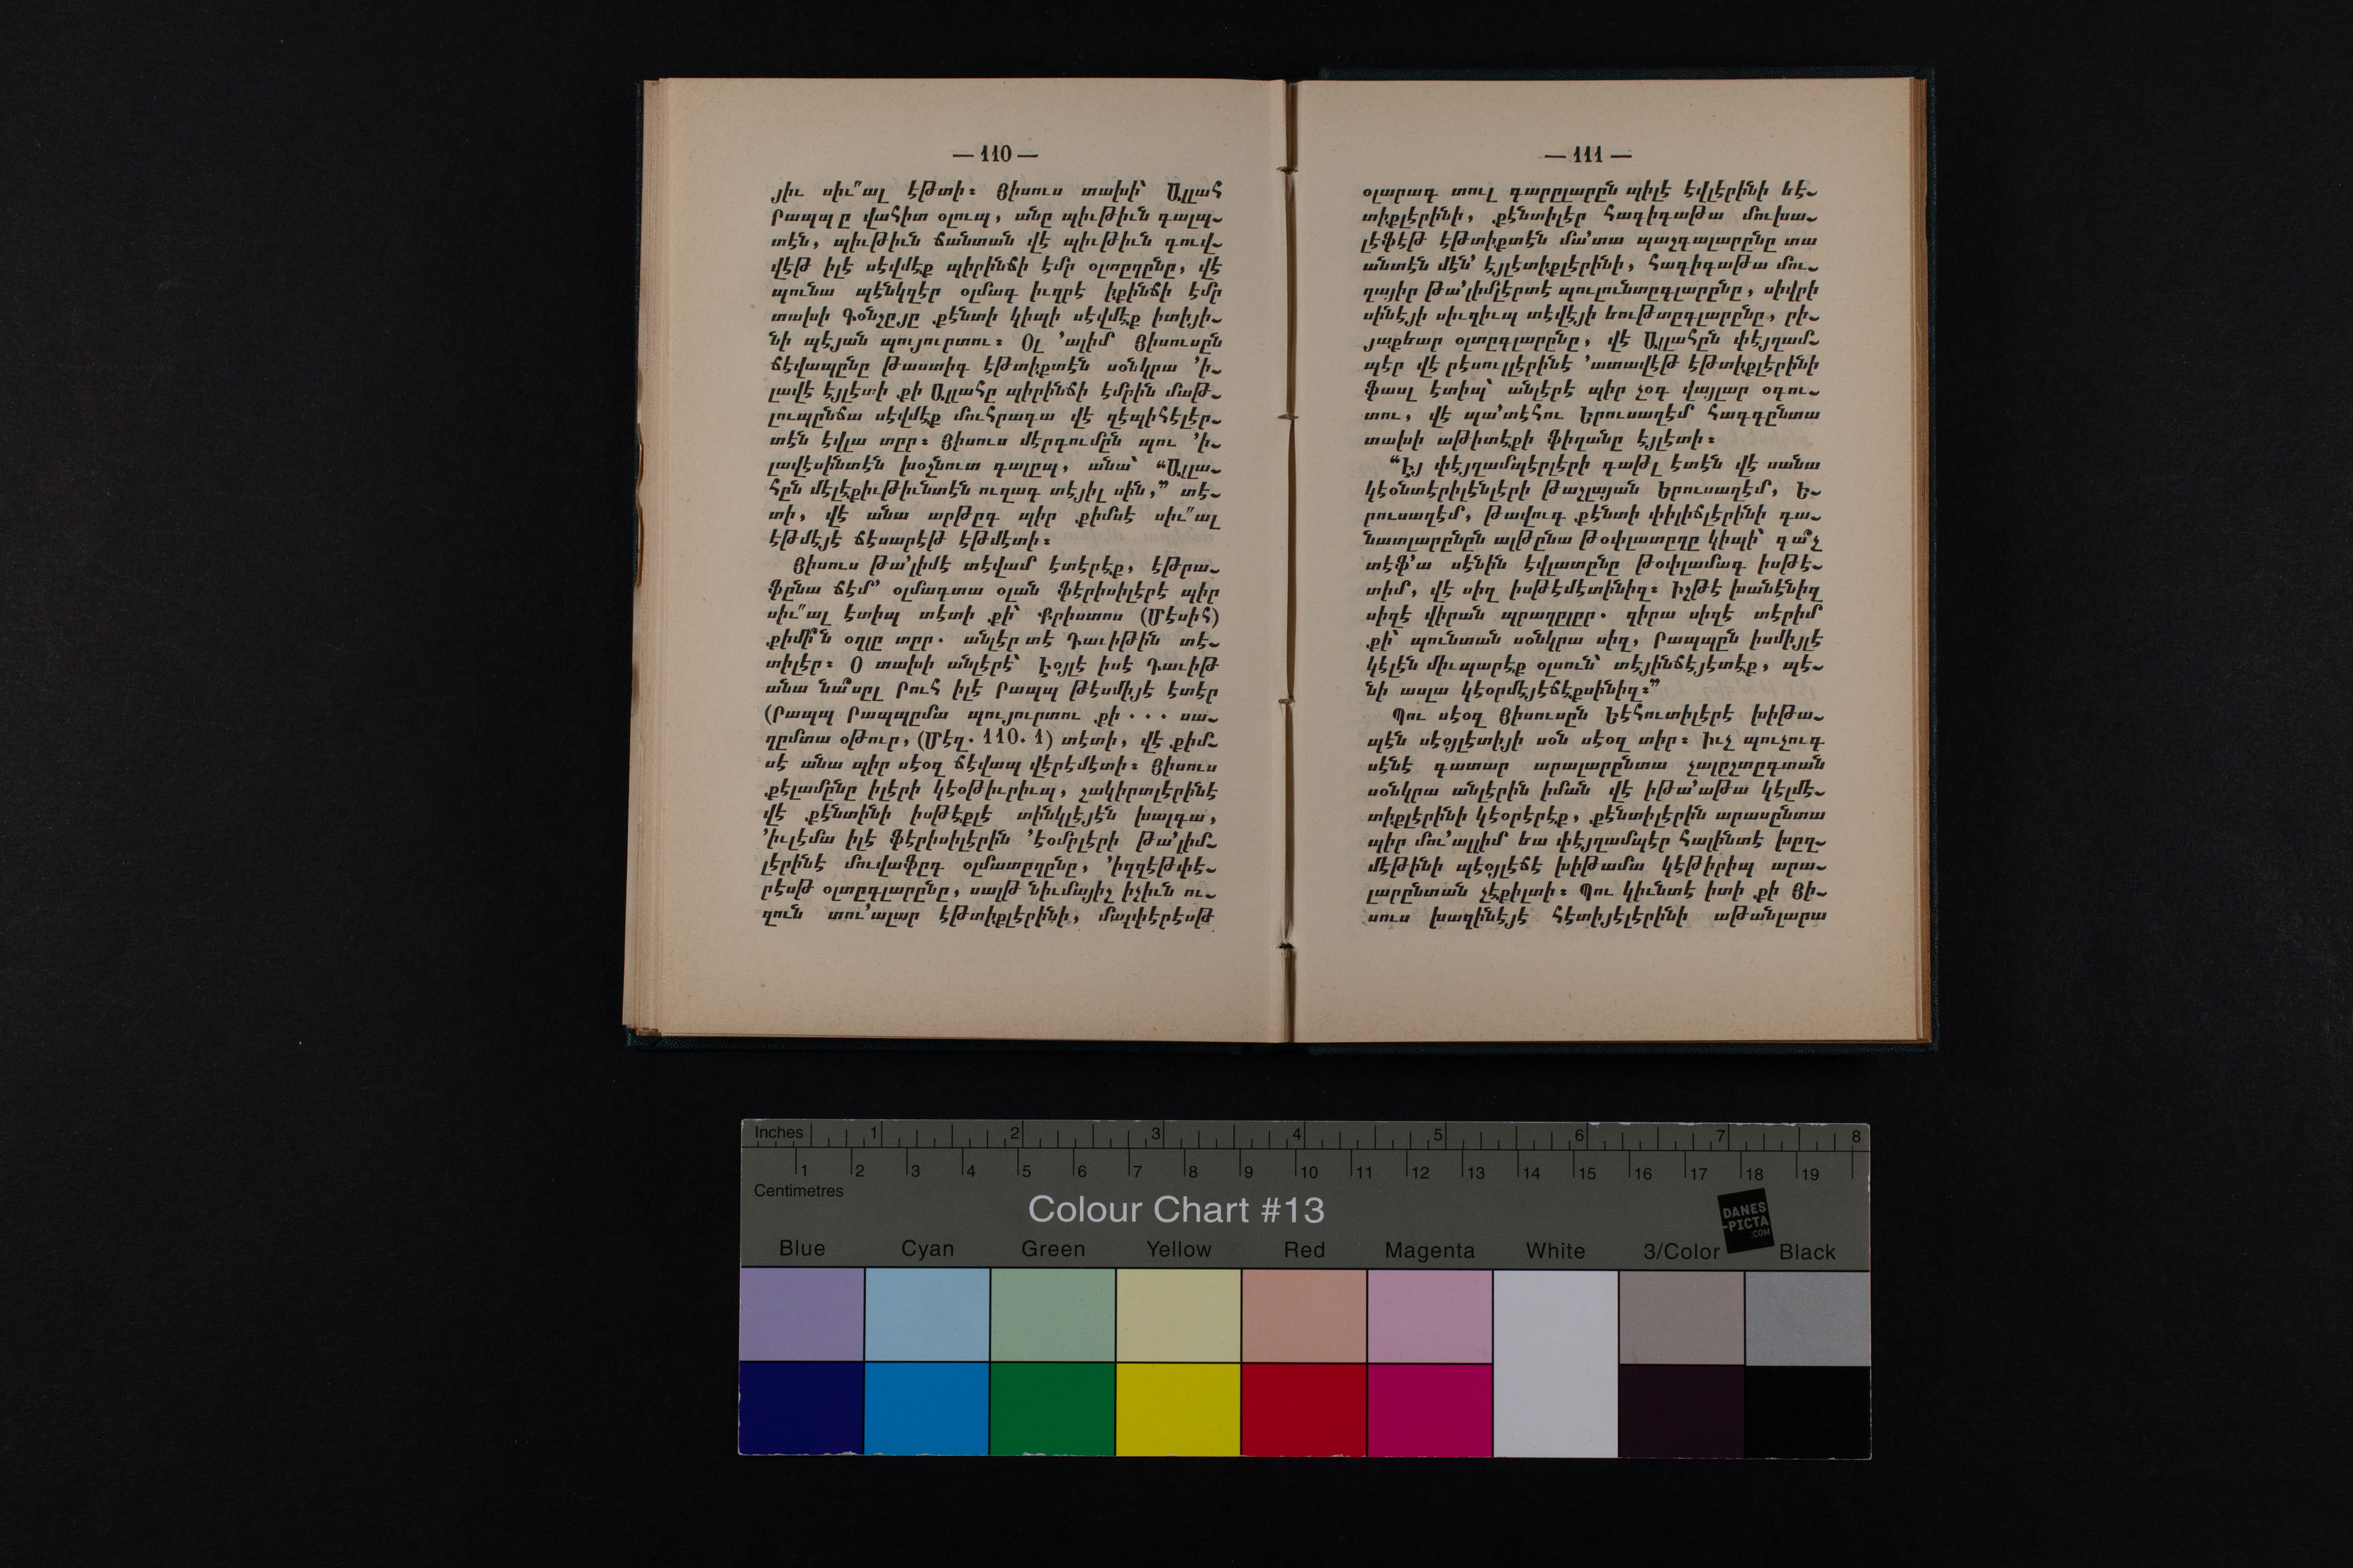 — 110 —
յիւ սիւ՞ալ էթտի։ Յիսուս տախի՝ Ալլահ
Րապպը վահիտ օլուպ, անը պիւթիւն գալպ֊
տէն, պիւթիւն ճանտան վէ պիւթիւն գուվ֊
վէթ իլէ սէվմէք պիրինճի էմր օլտըղընը, վէ
պունա պէնկզէր օլմագ իւզրէ իքինճի էմր
տախի Գօնշըյը քէնտի կիպի սէվմէք իտիյի֊
նի պէյան պույուրտու։ Օլ ՚ալիմ Յիսուսըն
ճէվապընը թաստիգ էթտիքտէն սօնկրա ՚ի֊
լավէ էյլէտի քի Ալլահը պիրինճի էմրին մաթ֊
լուպընճա սէվմէք մուհրագա վէ զէպիհէլէր֊
տէն էվլա տըր։ Յիսուս մէրդումըն պու ՚ի֊
լավէսինտէն խօշնուտ գալըպ, անա՝ “Ալլա֊
հըն մէլէքիւթիւնտէն ուզագ տէյիլ սին,” տէ֊
տի, վէ անա արթըգ պիր քիմսէ սիւ՞ալ
էթմէյէ ճէսարէթ էթմէտի։
Յիսուս թա՚լիմէ տէվամ էտէրէք, էթրա֊
ֆընա ճէմ՚ օլմագտա օլան ֆէրիսիլէրէ պիր
սիւ՞ալ էտիպ տէտի քի՝ Քրիստոս (Մէսիհ)
քիմի՞ն օղլը տըր. անլէր տէ Դաւիթին տէ֊
տիլէր։ Օ տախի անլէրէ՝ Էօյլէ իսէ Դաւիթ
անա նա՞սըլ Րուհ իլէ Րապպ թէսմիյէ էտէր
(Րապպ Րապպըմա պույուրտու քի . . . սա֊
ղըմտա օթուր, (Մէզ. 110. 1) տէտի, վէ քիմ֊
սէ անա պիր սէօզ ճէվապ վէրէմէտի։ Յիսուս
քէլամընը իլէրի կէօթիւրիւպ, շակիրտլէրինէ
վէ քէնտինի իսթէքլէ տինկլէյէն խալգա,
՚իւլէմա իլէ ֆէրիսիլէրին ՚էօմրլէրի թա՚լիմ֊
լէրինէ մուվաֆըգ օլմատըղընը, ՚իզզէթփէ֊
րէսթ օլտըգլարընը, սալթ նիւմայիշ իչիւն ու֊
զուն տու՚ալար էթտիքլէրինի, մալփէրէսթ
— 111 —
օլարագ տուլ գարըլարըն պիլէ էվլէրինի եէ֊
տիքլէրինի, քէնտիլէր հագիգաթա մուխա֊
լէֆէթ էթտիքտէն մա՚տա պաշգալարընը տա
անտէն մէն՚ էյլէտիքլէրինի, հագիգաթա մու֊
ղայիր թա՚լիմլէրտէ պուլունտըգլարընը, սիվրի
սինէյի սիւզիւպ տէվէյի եութտըգլարընը, րի֊
յաքեար օլտըգլարընը, վէ Ալլահըն փէյղամ֊
պէր վէ րէսուլլէրինէ ՚ատավէթ էթտիքլէրինի
ֆասլ էտիպ՝ անլէրէ պիր չօգ վայլար օգու֊
տու, վէ պա՚տէհու Երուսաղէմ հագգընտա
տախի աթիտէքի ֆիղանը էյլէտի։
“Էյ փէյղամպէրլէրի գաթլ էտէն վէ սանա
կէօնտէրիլէնլէրի թաշլայան Երուսաղէմ, Ե֊
րուսաղէմ, թավուգ քէնտի փիլիճլէրինի գա֊
նատլարընըն ալթընա թօփլատըղը կիպի՝ գա՞չ
տէֆ՚ա սէնին էվլատընը թօփլամագ իսթէ֊
տիմ, վէ սիզ իսթէմէտինիզ։ Իշթէ խանէնիզ
սիզէ վիրան պրաղըլըր. զիրա սիզէ տէրիմ
քի՝ պունտան սօնկրա սիզ, Րապպըն իսմիյլէ
կէլէն միւպարէք օլսուն՝ տէյինճէյէտէք, պէ֊
նի ասլա կէօրմէյէճէքսինիզ։”
Պու սէօզ Յիսուսըն Եէհուտիլէրէ խիթա֊
պէն սէօյլէտիյի սօն սէօզ տիր։ Իւչ պուչուգ
սէնէ գատար արալարընտա չալըշտըգտան
սօնկրա անլէրին իման վէ իթա՚աթա կէլմէ֊
տիքլէրինի կէօրէրէք, քէնտիլէրին արասընտա
պիր մու՚ալլիմ եա փէյղամպէր հալինտէ խըզ֊
մէթինի պէօյլէճէ խիթամա կէթիրիպ արա֊
լարընտան չէքիլտի։ Պու կիւնտէ իտի քի Յի֊
սուս խազինէյէ հէտիյէլէրինի աթանլարա
Inches 1 2 3 4 5 6 7 8
1 2 3 4 5 6 7 8 9 10 11 12 13 14 15 16 17 18 19
Centimetres
Colour Chart #13
DANES
-PICTA
.COM
Blue Cyan Green Yellow Red Magenta White 3/Color Black